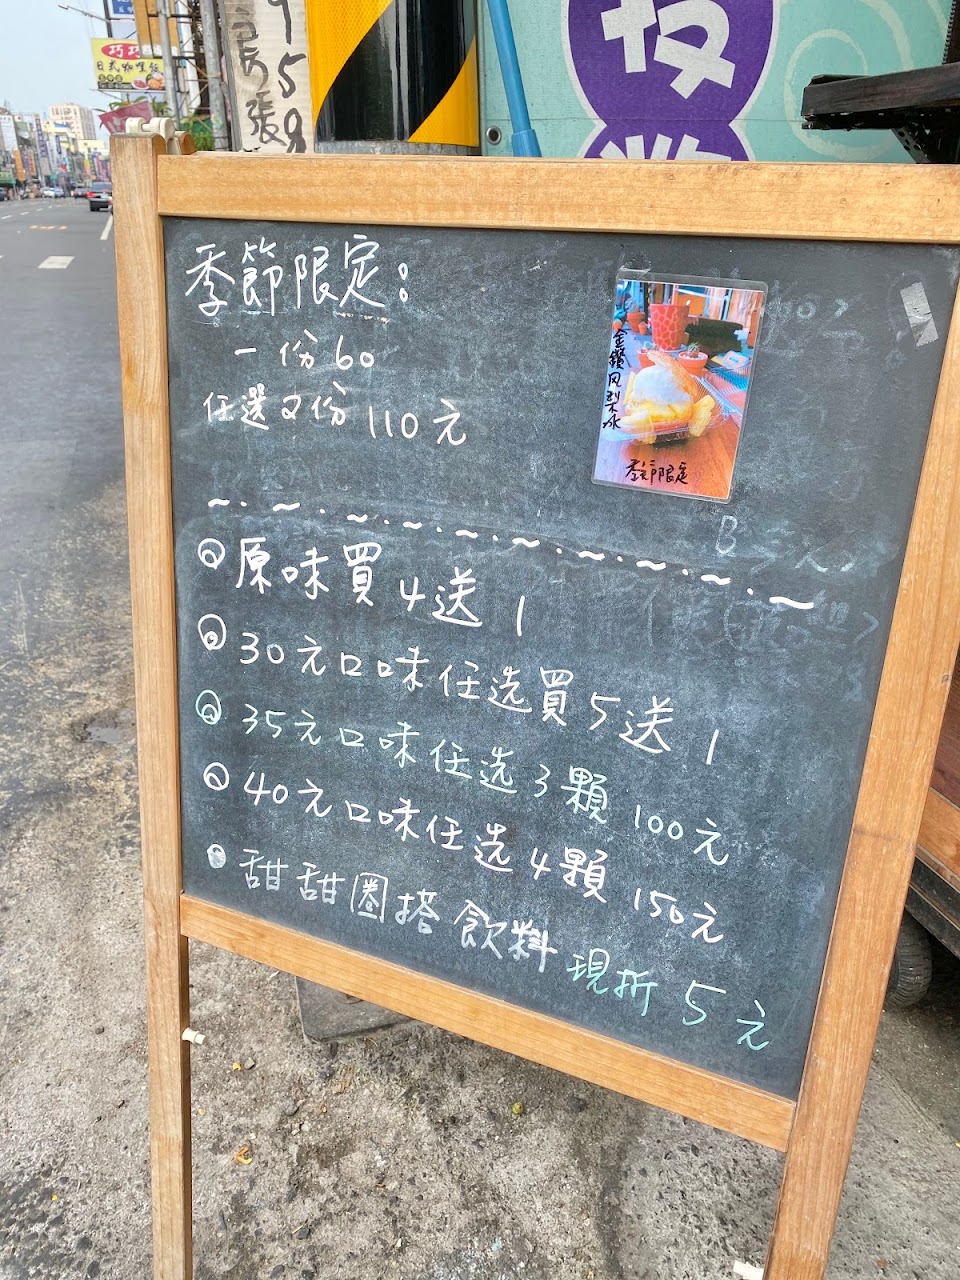 巧巧
日式咖哩飯
張
季節限定：
一份60
任選2份 110元
金鑽鳳梨冰
季節限定
原味買4送1
30元口味任选買5送1
35元口味任选3顆100元
40元口味任选4顆150元
甜甜圈搭飲料現折5元